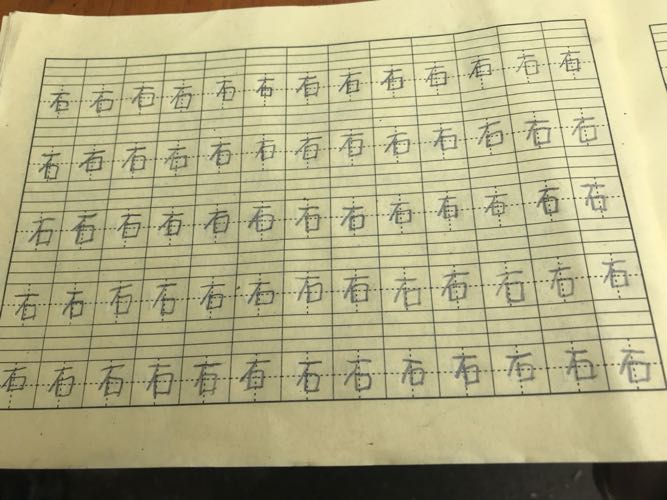 石石石石石石石石石石石石石
石石石石石石石石石石石石石
石石石石石石石石石石石石石
石石石石石石石石石石石石石
石石石石石石石石石石石石石